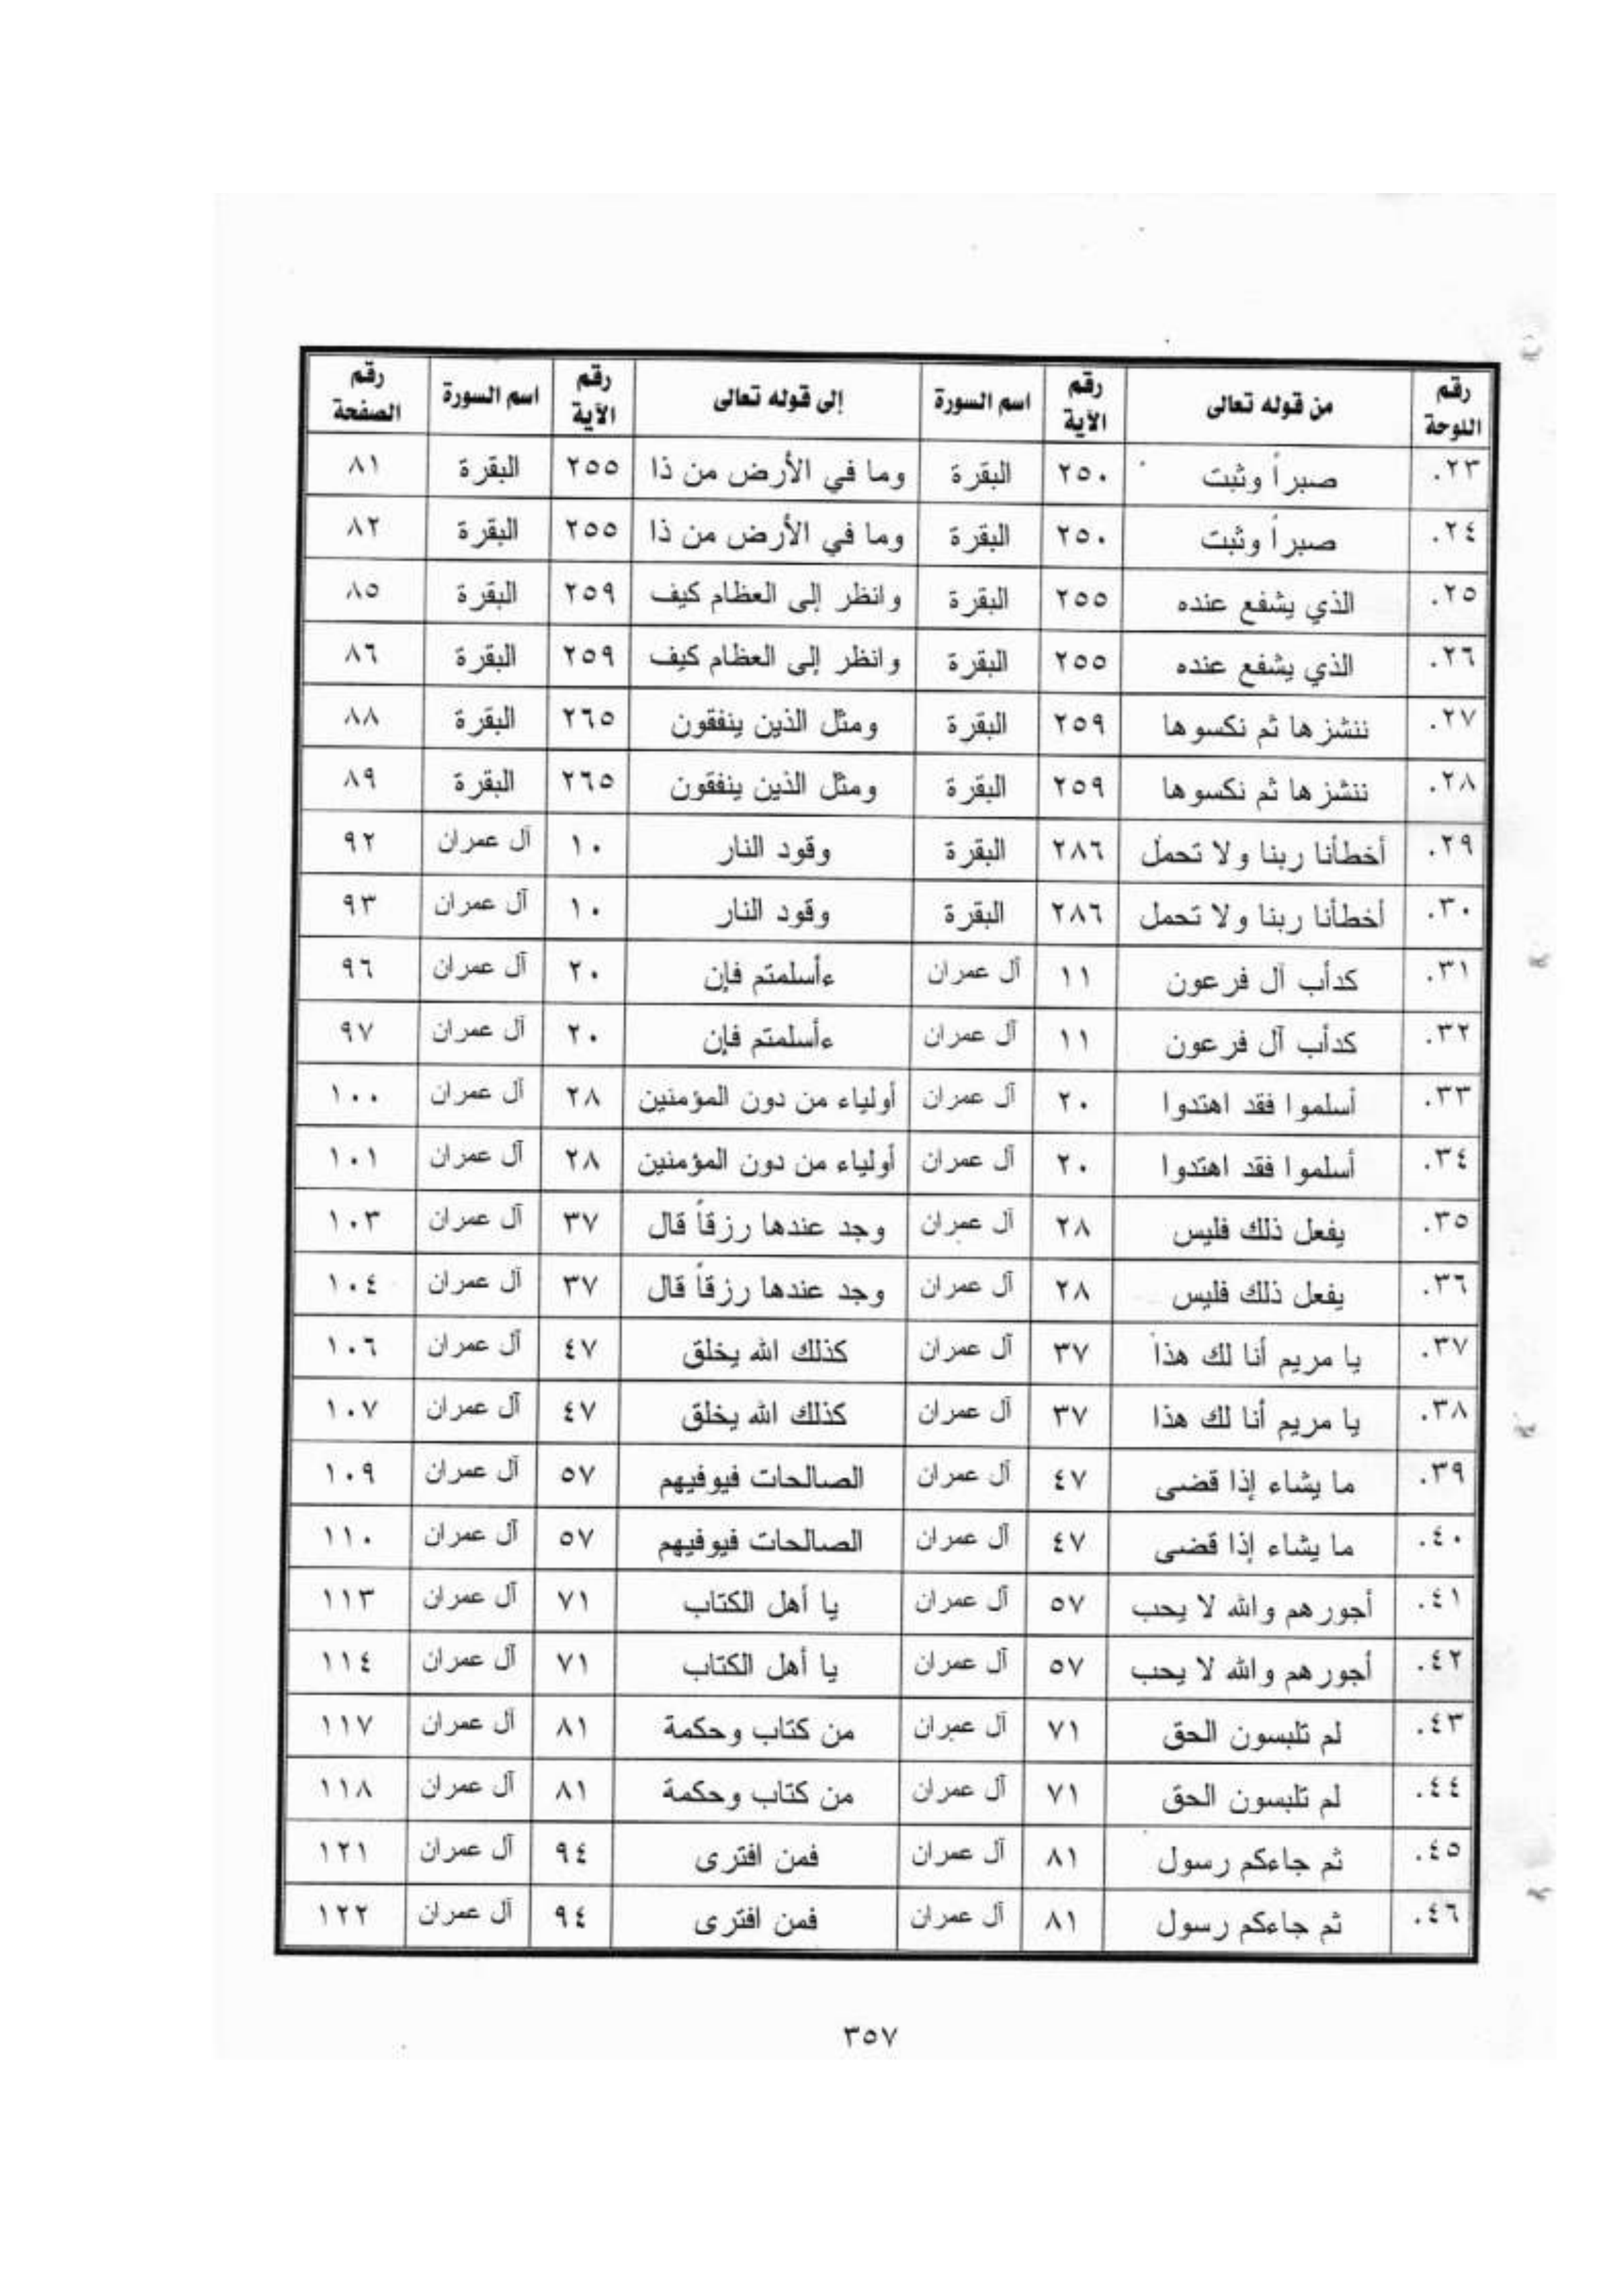 رقم اللوحة من قوله تعالى رقم الآية اسم السورة إلى قوله تعالى رقم الآية اسم السورة رقم الصفحة
٢٣. صبراً وثبت ٢٥٠ البقرة وما في الأرض من ذا ٢٥٥ البقرة ٨١
٢٤. صبراً وثبت ٢٥٠ البقرة وما في الأرض من ذا ٢٥٥ البقرة ٨٢
٢٥. الذي يشفع عنده ٢٥٥ البقرة وانظر إلى العظام كيف ٢٥٩ البقرة ٨٥
٢٦. الذي يشفع عنده ٢٥٥ البقرة وانظر إلى العظام كيف ٢٥٩ البقرة ٨٦
٢٧. ننشزها ثم نكسوها ٢٥٩ البقرة ومثل الذين ينفقون ٢٦٥ البقرة ٨٨
٢٨. ننشزها ثم نكسوها ٢٥٩ البقرة ومثل الذين ينفقون ٢٦٥ البقرة ٨٩
٢٩. أخطأنا ربنا ولا تحمل ٢٨٦ البقرة وقود النار ١٠ آل عمران ٩٢
٣٠. أخطأنا ربنا ولا تحمل ٢٨٦ البقرة وقود النار ١٠ آل عمران ٩٣
٣١. كدأب آل فرعون ١١ آل عمران ءأسلمتم فإن ٢٠ آل عمران ٩٦
٣٢. كدأب آل فرعون ١١ آل عمران ءأسلمتم فإن ٢٠ آل عمران ٩٧
٣٣. أسلموا فقد اهتدوا ٢٠ آل عمران أولياء من دون المؤمنين ٢٨ آل عمران ١٠٠
٣٤. أسلموا فقد اهتدوا ٢٠ آل عمران أولياء من دون المؤمنين ٢٨ آل عمران ١٠١
٣٥. يفعل ذلك فليس ٢٨ آل عمران وجد عندها رزقاً قال ٣٧ آل عمران ١٠٣
٣٦. يفعل ذلك فليس ٢٨ آل عمران وجد عندها رزقاً قال ٣٧ آل عمران ١٠٤
٣٧. يا مريم أنا لك هذا ٣٧ آل عمران كذلك الله يخلق ٤٧ آل عمران ١٠٦
٣٨. يا مريم أنا لك هذا ٣٧ آل عمران كذلك الله يخلق ٤٧ آل عمران ١٠٧
٣٩. ما يشاء إذا قضى ٤٧ آل عمران الصالحات فيوفيهم ٥٧ آل عمران ١٠٩
٤٠. ما يشاء إذا قضى ٤٧ آل عمران الصالحات فيوفيهم ٥٧ آل عمران ١١٠
٤١. أجورهم والله لا يحب ٥٧ آل عمران يا أهل الكتاب ٧١ آل عمران ١١٣
٤٢. أجورهم والله لا يحب ٥٧ آل عمران يا أهل الكتاب ٧١ آل عمران ١١٤
٤٣. لم تلبسون الحق ٧١ آل عمران من كتاب وحكمة ٨١ آل عمران ١١٧
٤٤. لم تلبسون الحق ٧١ آل عمران من كتاب وحكمة ٨١ آل عمران ١١٨
٤٥. ثم جاءكم رسول ٨١ آل عمران فمن افترى ٩٤ آل عمران ١٢١
٤٦. ثم جاءكم رسول ٨١ آل عمران فمن افترى ٩٤ آل عمران ١٢٢
٣٥٧